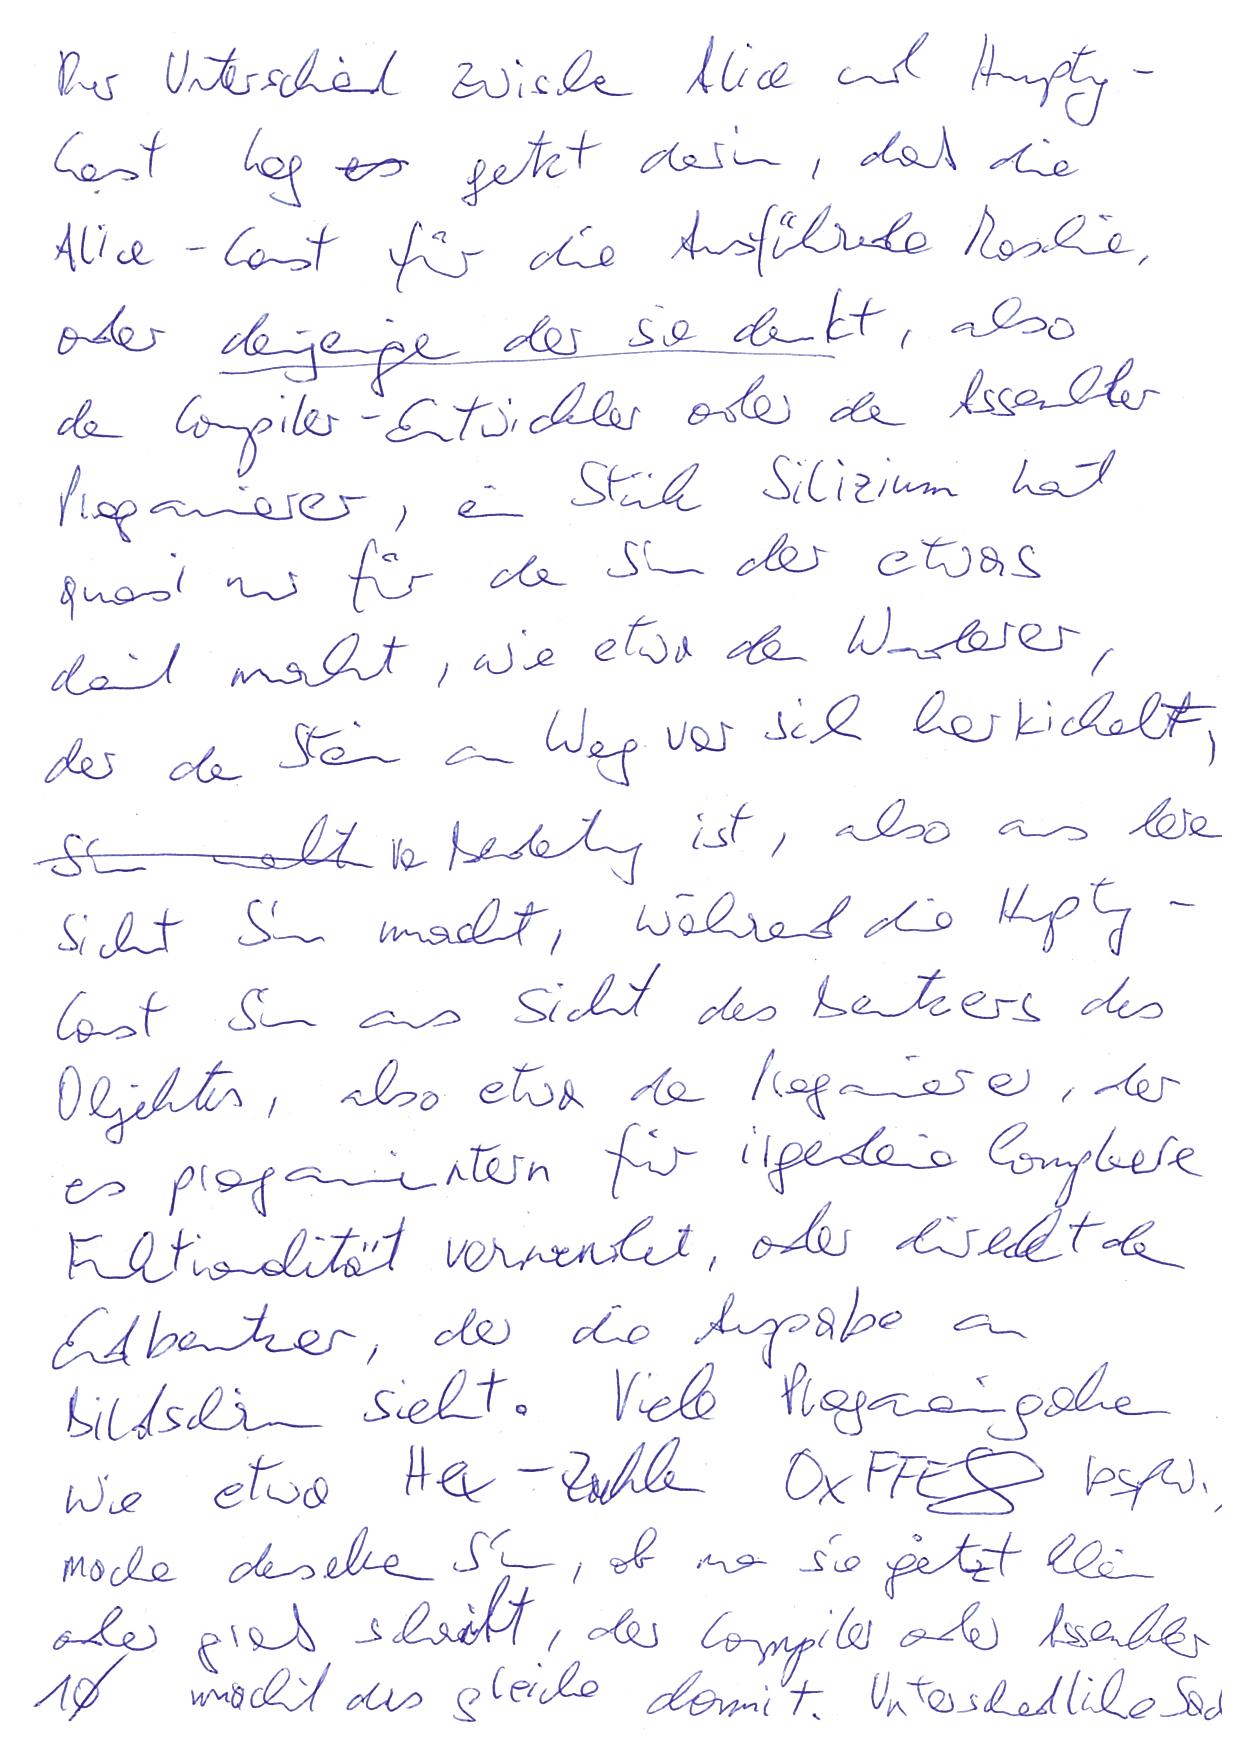 Der Unterschied zwischen Alice und Humpty-
Const lag es jetzt darin, daß die
Alice-Const für die Ausführende Maschine,
oder denjenigen der sie denkt, also
den Compiler-Entwickler oder den Assembler
Programmierer, ein Stück Silizium hat
quasi nur für den Sinn der etwas
damit macht, wie etwa den Wanderer,
der den Stein am Weg vor sich her kickt,
von Bedeutung ist, also aus deren
Sicht Sinn macht, während die Humpty-
Const Sinn aus Sicht des Benutzers des
Objektes, also etwa den Programmierer, der
es programmintern für irgendeine Complexere
Funktionalität verwendet, oder direkt den
Endbenutzer, der die Ausgabe am
Bildschirm sieht. Viele Programmeingaben
wie etwa Hex-Zahlen 0xFFE bspw.,
machen denselben Sinn, ob man sie jetzt klein
oder groß schreibt, der Compiler oder Assembler
10 macht das gleiche damit. Unterschiedliche